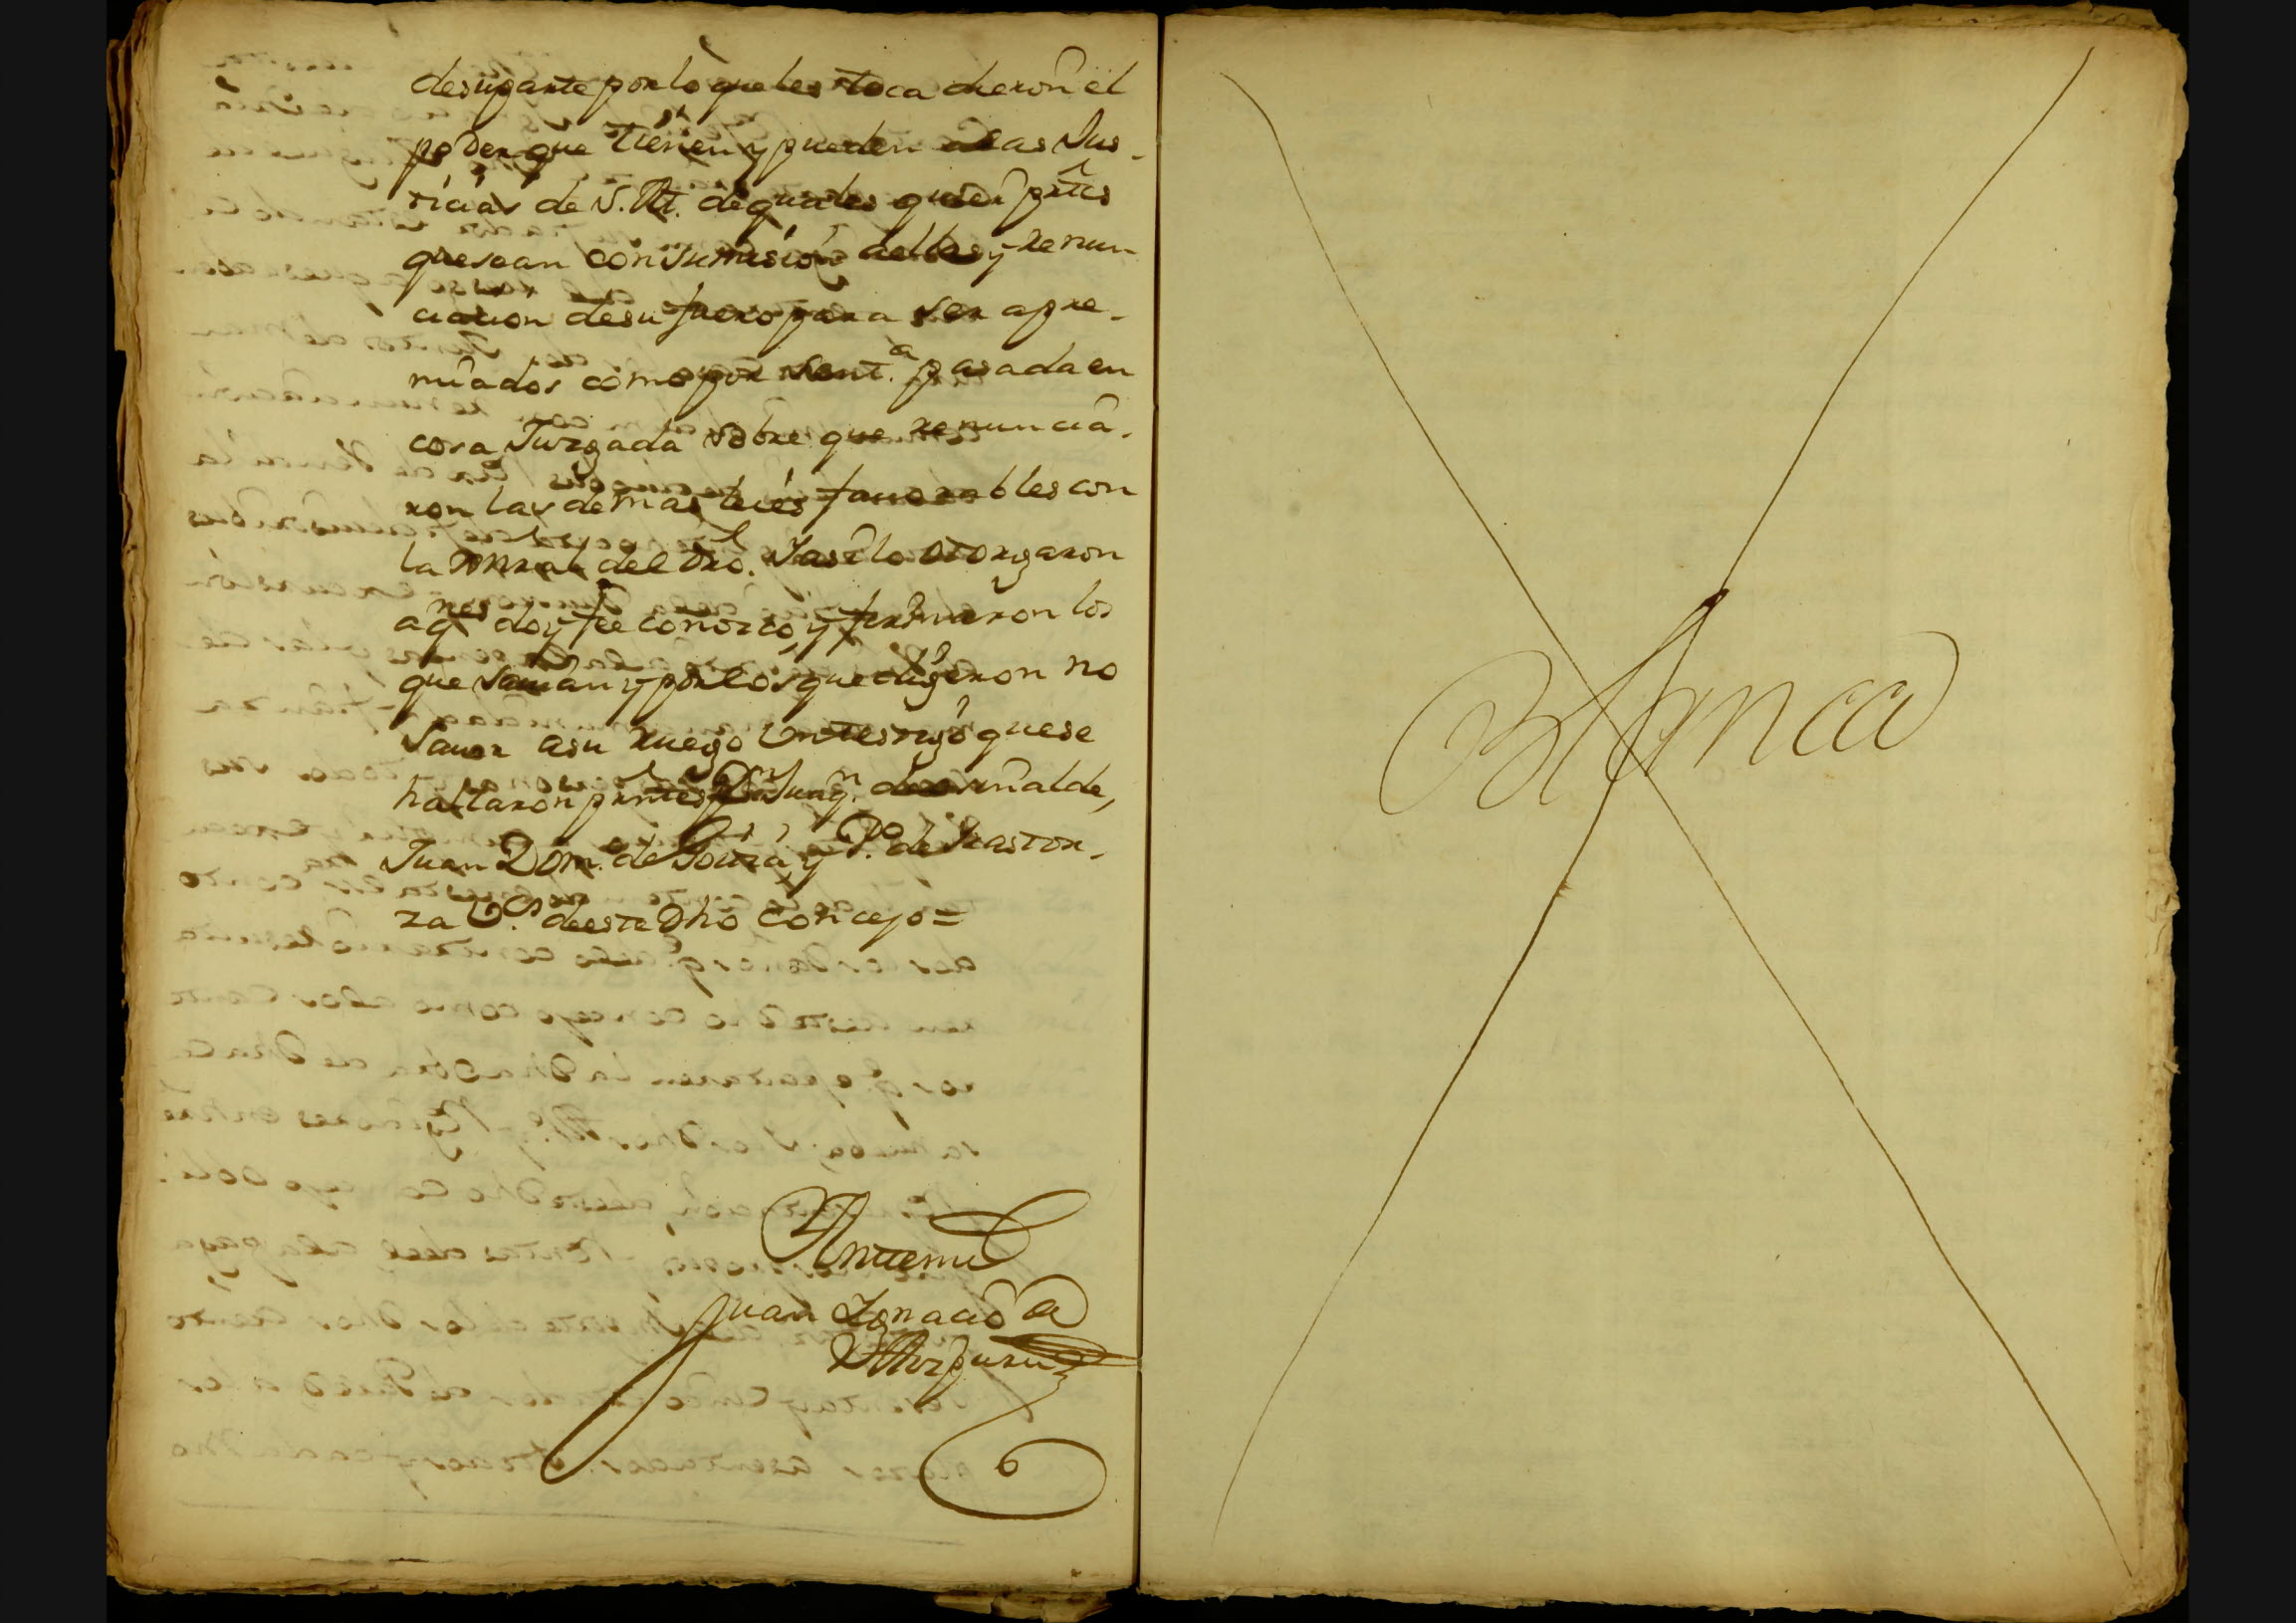 desuparte porlo queles toca dieron el
poder que tienen y pueden alas Jus-
ticias de S. M. de quales quier prtes
quesean con sumision aellas y renun
ciacion desu fuero para ser apre-
miados como por Sent.a pasada en
cosa Juzgada sobre que renuncia-
ron las demas leies favorables con
la xnral del dro. Iasi lo otorgaron
aqnes doy fee conozco, y firmaron los
que savian y por los que digeron no
saver asu ruego Untestigo quese
hallaron prntes Juaqn.
Juan Dom.o de y P.o de
za Vs. deeste dho Concejo=
Antemi
Juan Ignacio de
Blanca